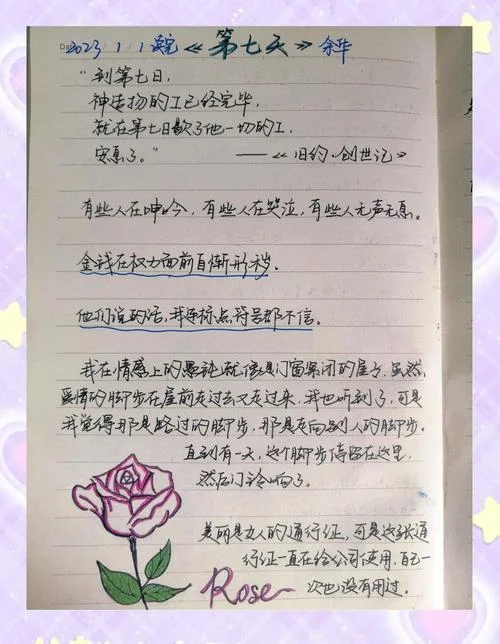 2023/1/1 读完《第七天》余华
"到第七日,
神造物的工已经完毕,
就在第七日歇了他一切的工,
安息了。" ——《旧约·创世记》
有些人在呻吟,有些人在哭泣,有些人无声无息。
金钱在权力面前自惭形秽.
他们说的话,我连标点符号都不信。
我在情感上的愚钝就像是门窗紧闭的屋子,虽然,
爱情的脚步在屋前走过去又走过来,我也听到了,可是
我觉得那是路过的脚步,那是走向别人的脚步.
直到有一天,这个脚步停留在这里,
然后门铃响了。
美丽是女人的通行证,可是这张通
行证一直在给公司使用,自己一
次也没有用过.
Rose